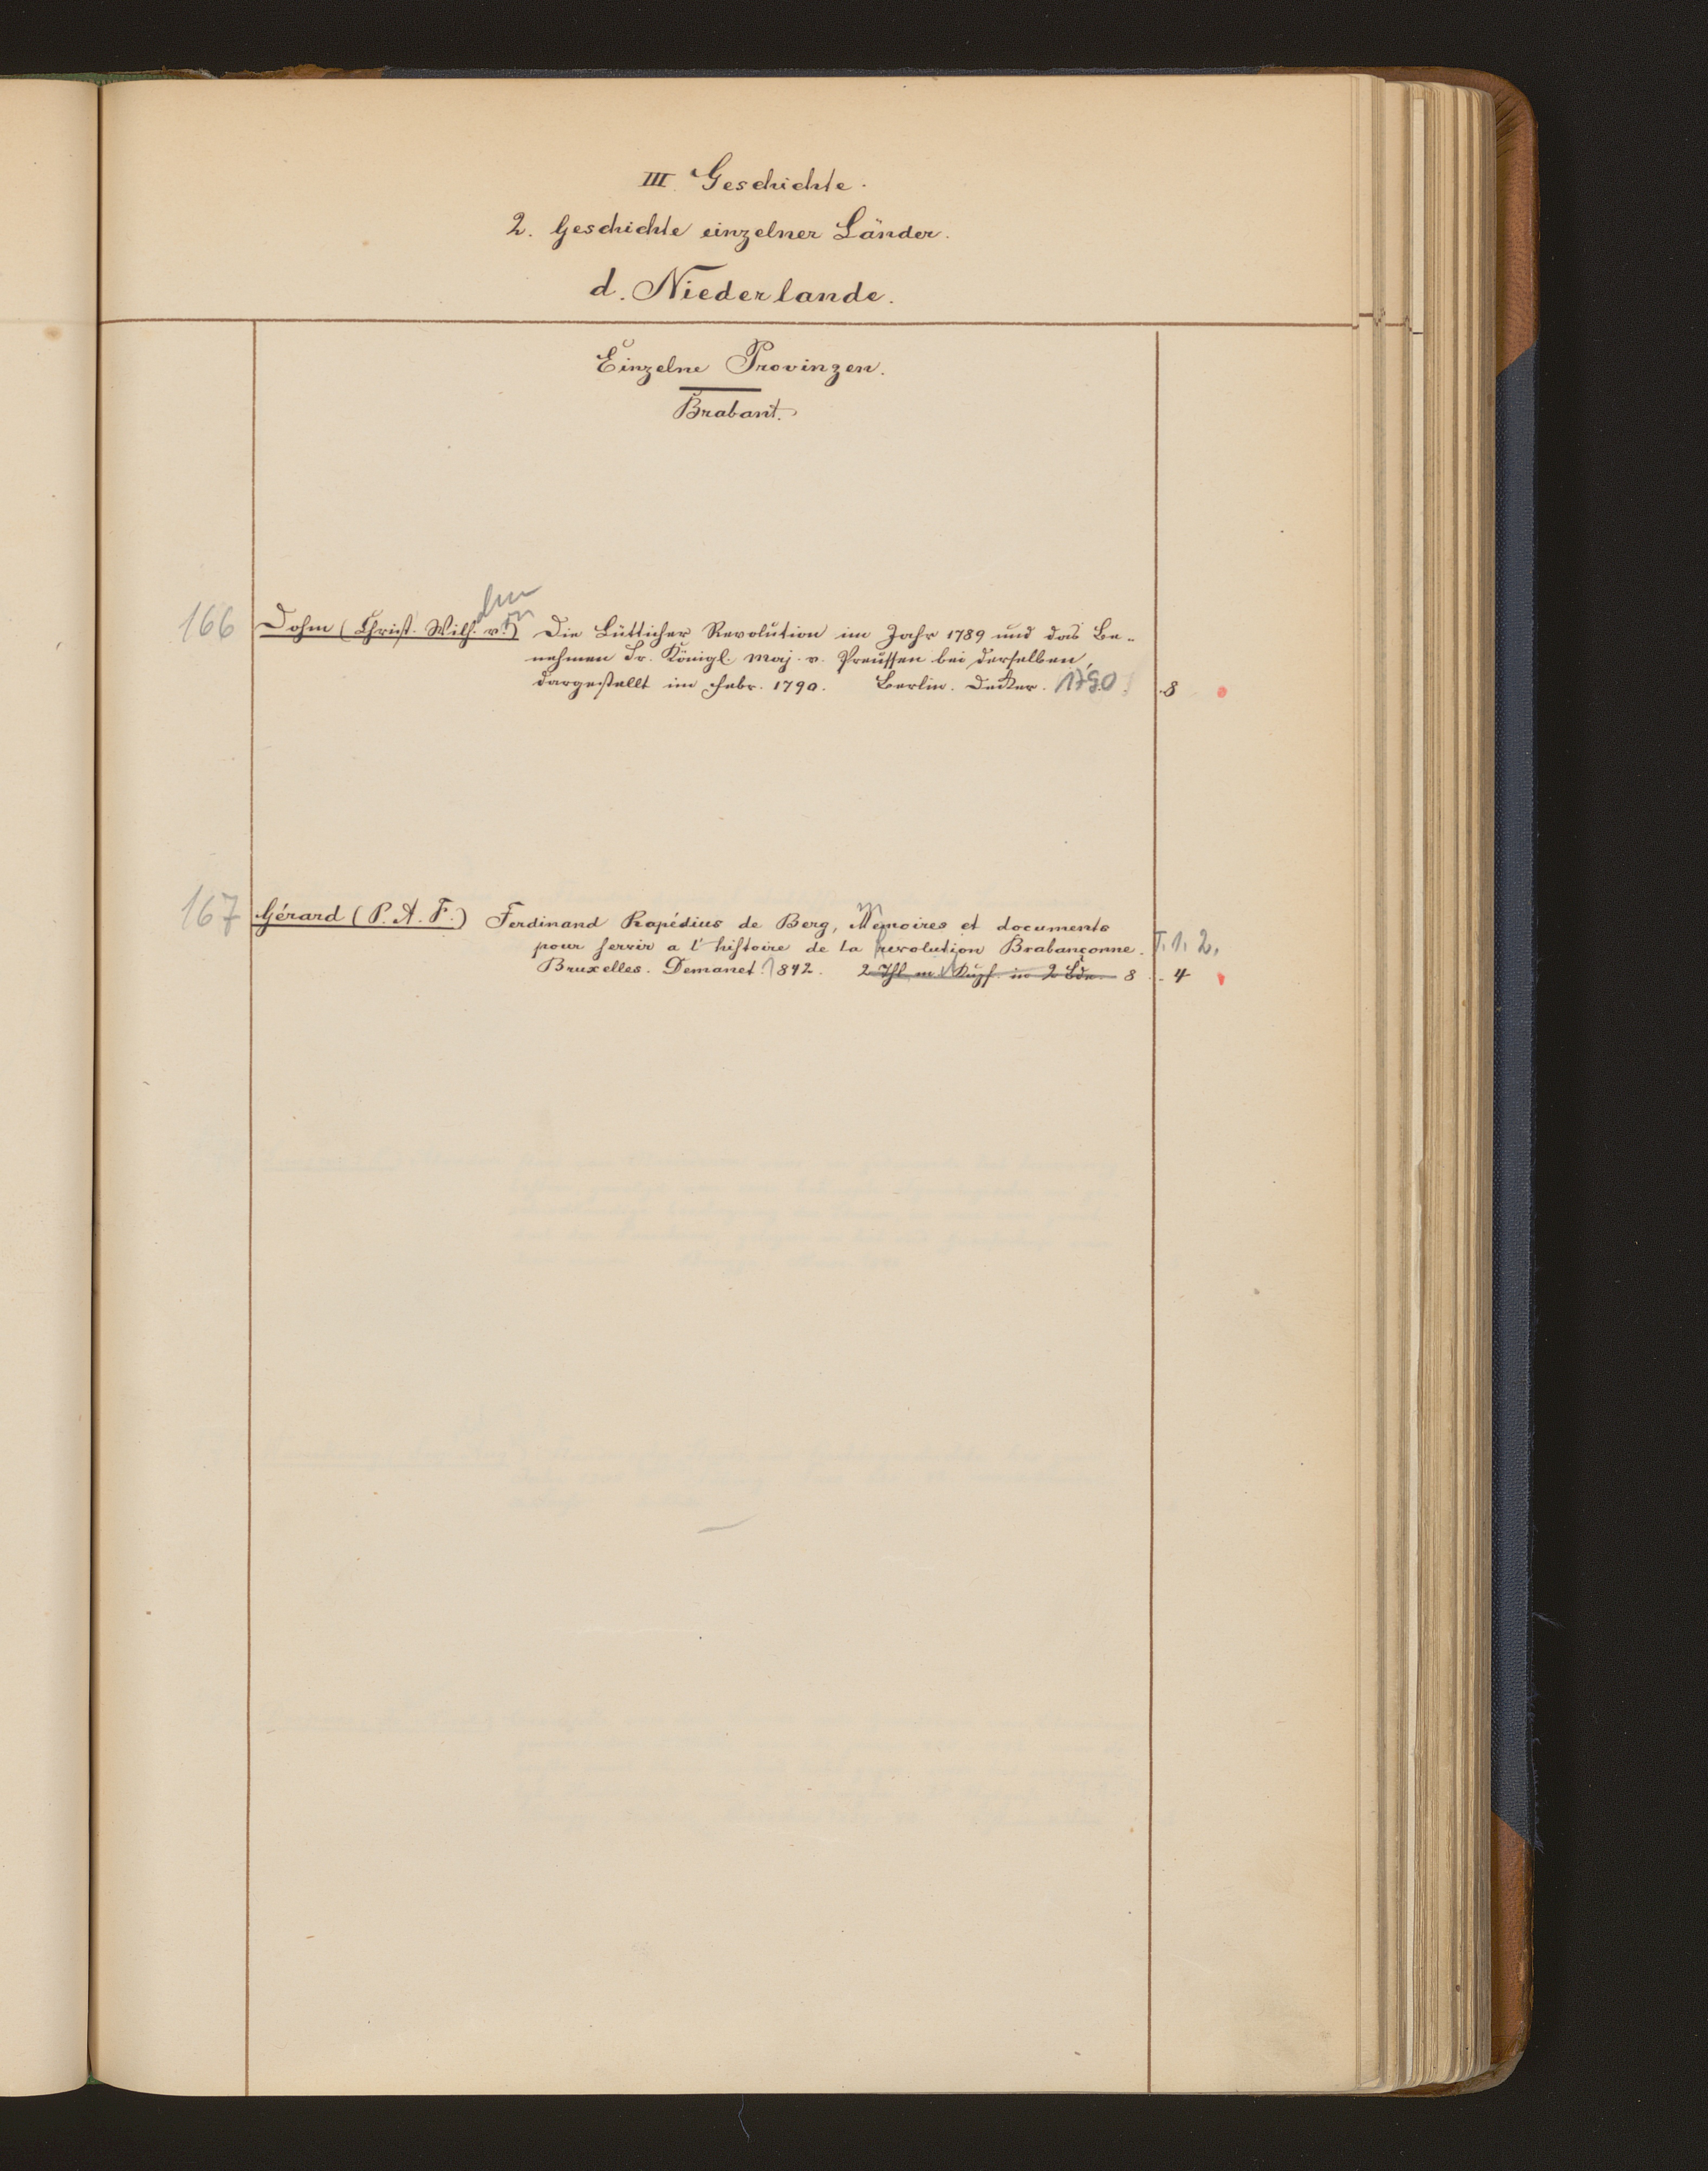 III. Geschichte.
2. Geschichte einzelner Länder.
d. Niederlande.
Einzelne Provinzen.
Brabant.
166 Dohm (Christ. Wilh. v.) Die Lütticher Revolution im Jahr 1789 und das Be-
nehmen Sr. Königl. Maj. v. Preussen bei derselben,
dargestellt im Febr. 1790. Berlin. Decker. 1790. 8
167 Gérard (P. A. F.) Ferdinand Rapédius de Berg, Memoires et documents
pour servir a l'histoire de la revolution Brabançonne. T. 1. 2.
Bruxelles. Demanet. 1842. 2 Thl. m. Kupf. in 2 Bdn. 8. 4